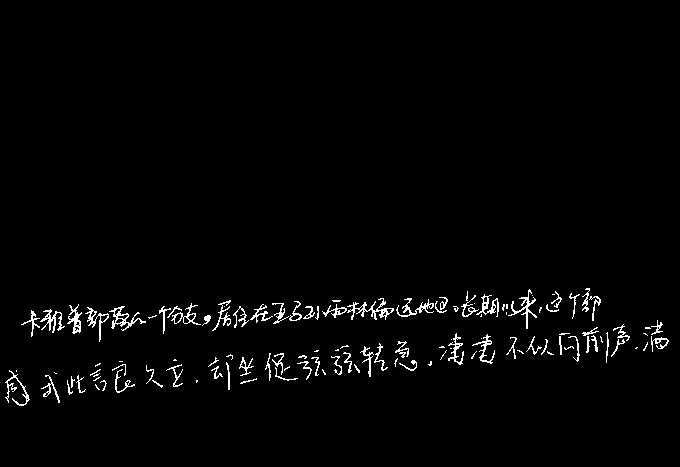 卡雅普部落的一个分支。居住在亚马孙雨林偏远地区。长期以来,这个部
感我此言良久立,却坐促弦弦转急,凄凄不似向前声,满